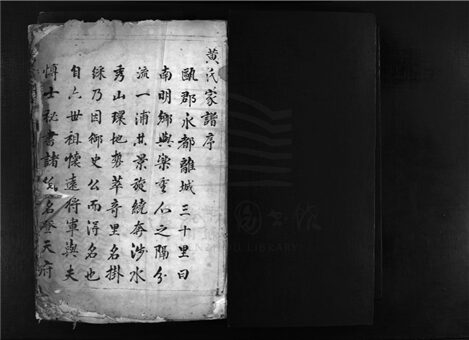 黄氏家譜序
甌郡永都離城三十里曰
南明鄉與樂重人之隔分
流一浦其景旋繞夲涉水
秀山環地勢萃奇里名掛
綵乃因御史公而得名也
自六世祖懷遠將軍與夫
博士秘書諸公名登天府
LIBRARY